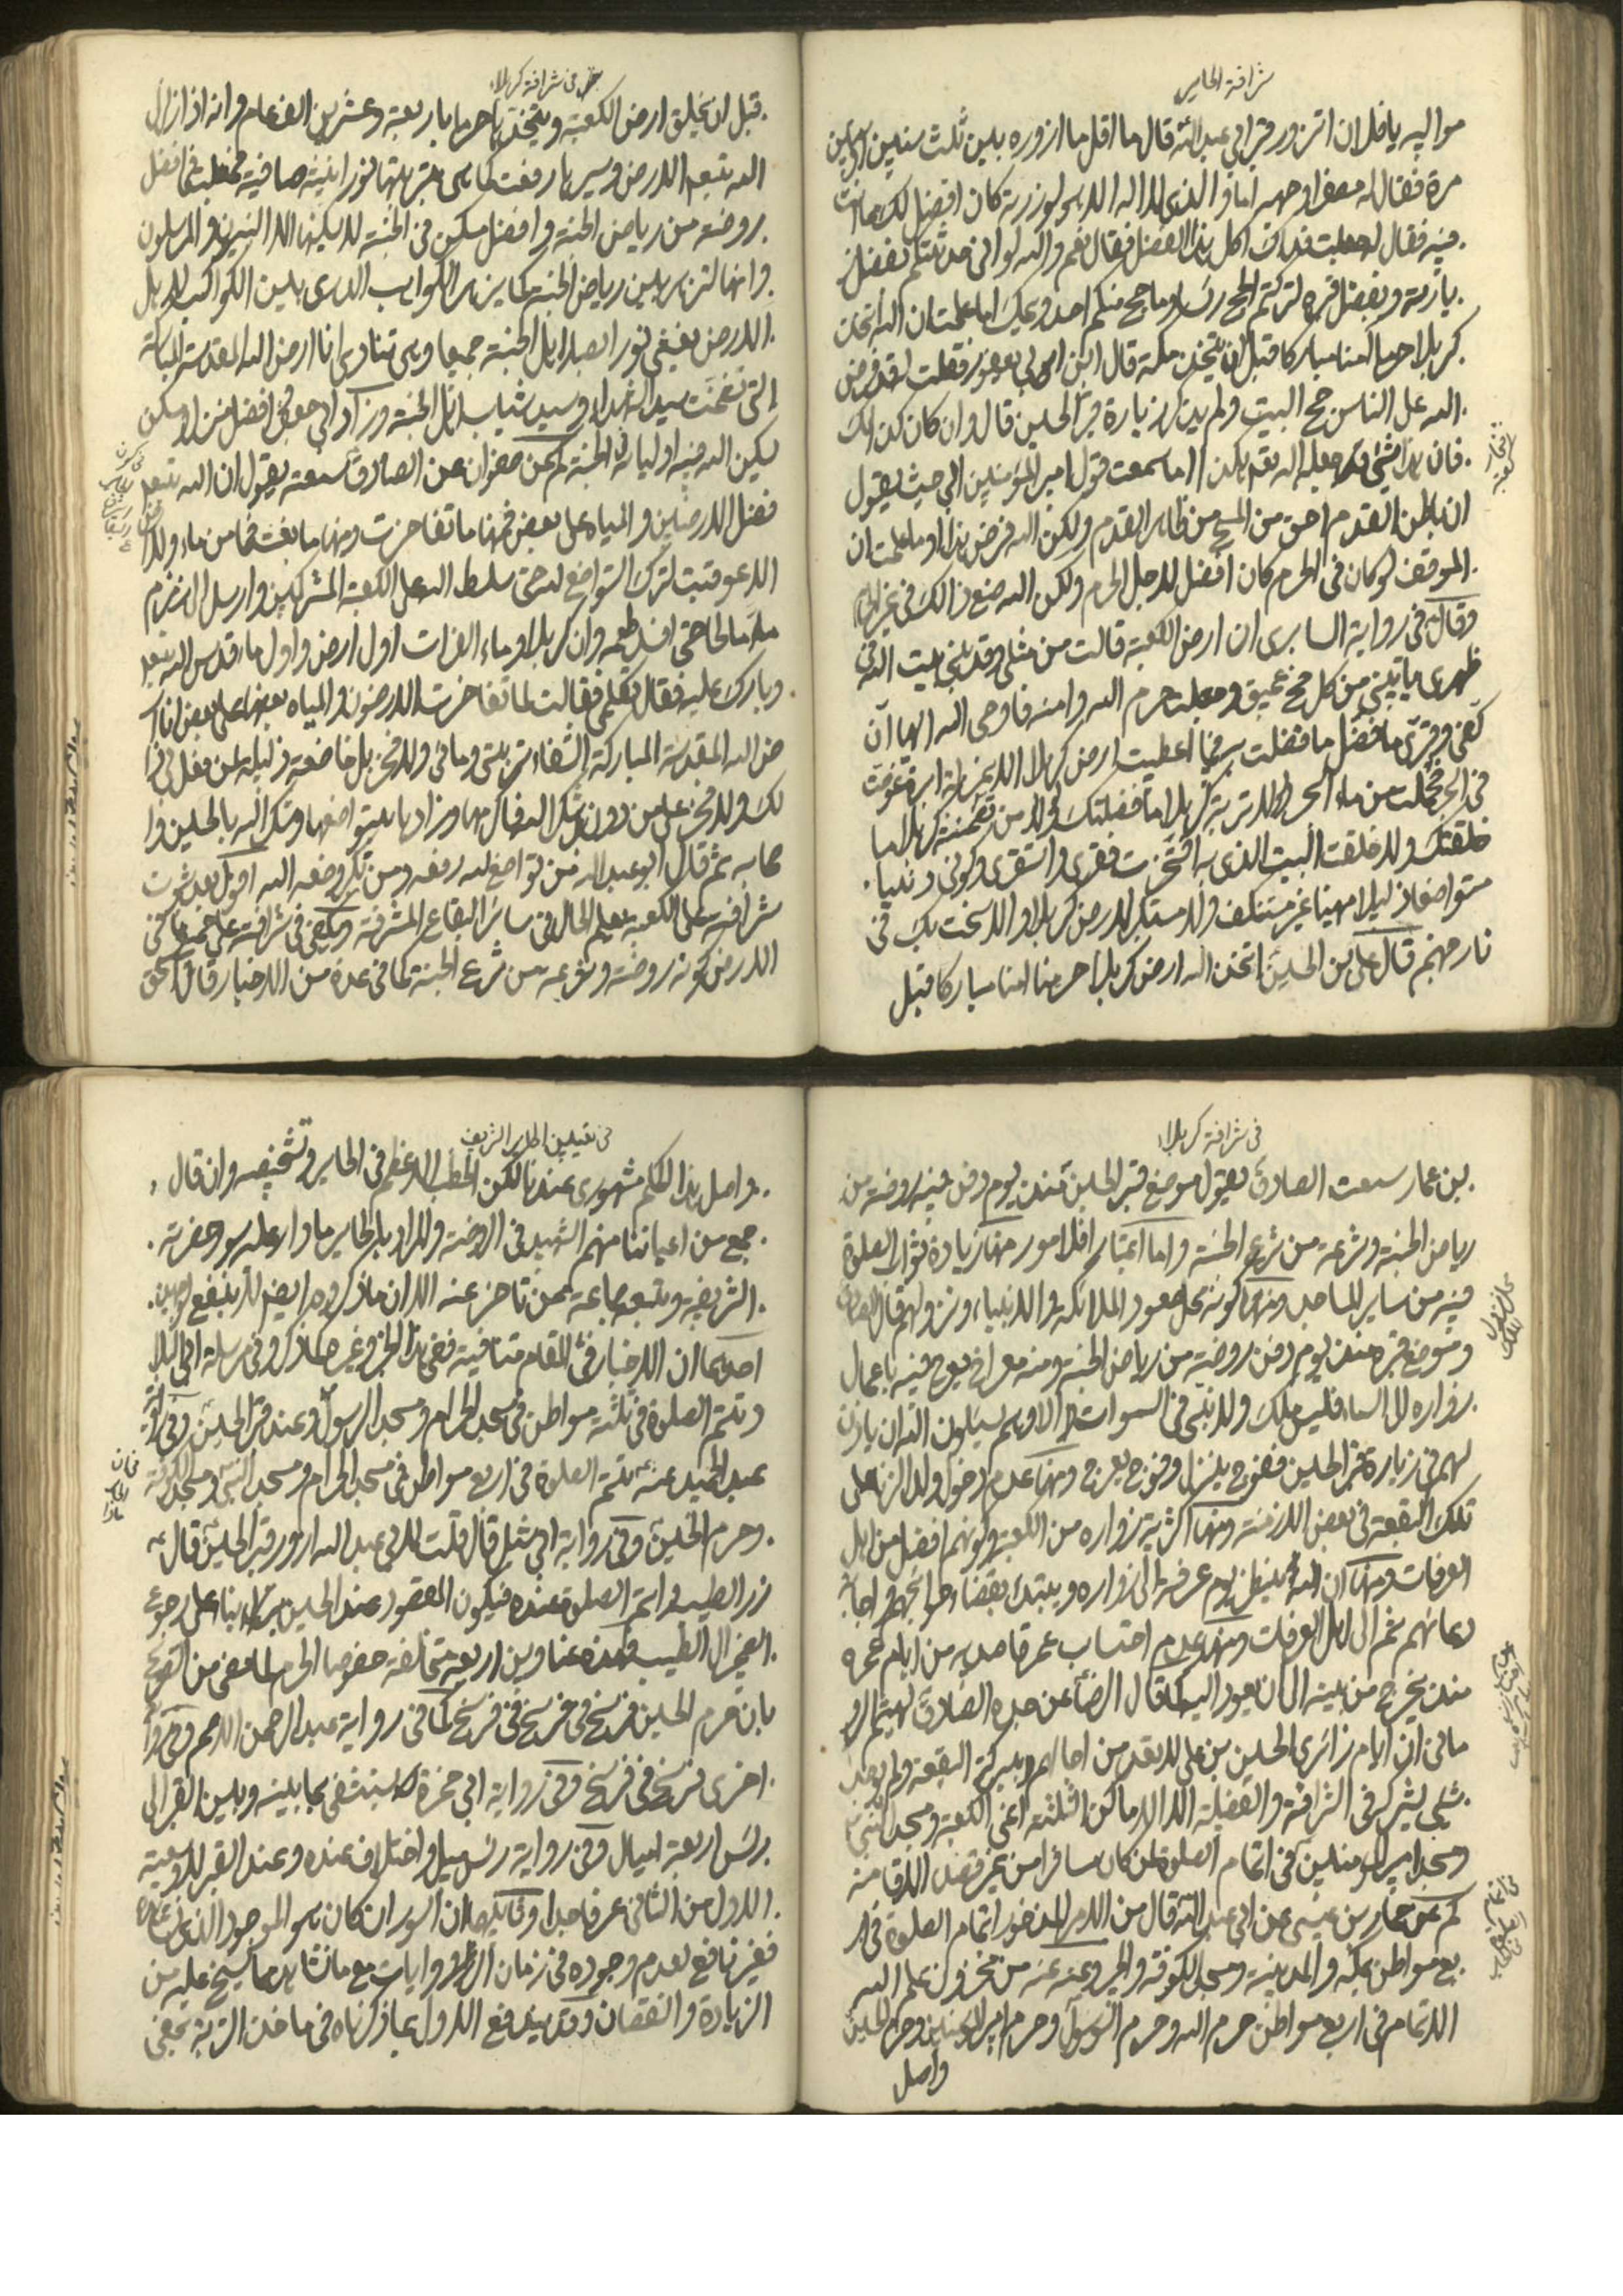 شرافة الحاير
مواليه يا فلان اتزور قبر ابي عبد الله قال ما اقل ما ازوره بين ثلث سنين او سنين
مرة فقال له مصفرا وجهه اما والذي لا اله الا هو لو زرته كان افضل لك مما انت
فيه فقال له جعلت فداك اكل هذا الفضل فقال نعم والله لو اني حدثتكم بفضل
زيارته وبفضل قبره لتركتم الحج راسا وما حج منكم احد ويحك اما علمت ان الله اتخذ
كربلا حرما امنا مباركا قبل ان يتخذ مكة قال ابن ابي يعفور فقلت له قد فرض
الله على الناس حج البيت ولم يذكر زيارة قبر الحسين قال وان كان كذلك
فان هذا شيء جعله الله هكذا اما سمعت قول امير المؤمنين حيث يقول
ان باطن القدم احق من المسح من ظاهر القدم ولكن الله فرض هذا او ما علمت ان
الموقف لو كان في الحرم كان افضل لاجل الحرم ولكن الله صنع ذالك في غير الحرم
وقال في رواية السابري ان ارض الكعبة قالت من مثلي وقد بني بيت الله في
ظهري ياتيني من كل فج عميق وجعلت حرم الله وامنه فاوحى الله اليها ان
كفي وقري ما فضل ما فضلت به فيما اعطيت ارض كربلا الا بمنزلة ابرة غرست
في البحر فحملت من ماء البحر ولولا تربة كربلا ما فضلتك ولولا من تضمنته كربلا ما
خلقتك ولا خلقت البيت الذي به افتخرت فقري واستقري وكوني دنيا
متواضعا ذليلا مهينا غير مستنكف ولا مستكبر لارض كربلا والا سخت بك في
نار جهنم قال علي بن الحسين اتخذ الله ارض كربلا حرما امنا مباركا قبل
في شرافة كربلا
قبل ان يخلق ارض الكعبة ويتخذها حرما باربعة وعشرين الف عام وانه اذا زلزل
الله تعم الارض وسيرها رفعت كما هي بتربتها نورانية صافية فجعلت في افضل
روضة من رياض الجنة وافضل مسكن في الجنة لا يسكنها الا النبيون والمرسلون
وانها لتزهر بين رياض الجنة كما يزهر الكوكب الدري بين الكواكب لاهل
الارض يغشي نورها ابصار اهل الجنة جميعا وهي تنادي انا ارض الله المقدسة المباركة
التي تضمنت سيد الشهداء وسيد شباب اهل الجنة وزاد ابي جعفر افضل منزل ومسكن
يسكن الله فيه اولياءه في الجنة كم عن صفوان عن الصادق سمعته يقول ان الله تعم
فضل الارضين والمياه على بعض فمنها ما تفاخرت ومنها ما بغت فما من ماء ولا ارض
الا عوقبت لترك التواضع لله حتى سلط الله على الكعبة المشركين وارسل الى زمزم
ماء مالحا حتى افسد طعمه وان كربلا وماء الفرات اول ارض واول ماء قدس الله تعم
وبارك عليه فقال تكلمي فقالت لما تفاخرت الارضون والمياه بعضها على بعض انا ار
ض الله المقدسة المباركة الشفاء في تربتي ومائي ولا فخر بل خاضعة ذليلة لمن فعل بي ذا
لك ولا فخر على من دوني بل شكرا لله فاكرمها وزادها بتواضعها وشكرها لله بالحسين وا
صحابه ثم قال ابو عبد الله من تواضع لله رفعه ومن تكبر وضعه الله اقول بعد ثبوت
شرافته على الكعبة يعلم الحال في ساير البقاع المشرفة ويكفي في شرافته على جميع ما في
الارض كونه روضة وترعة من ترع الجنة كما في عدة من الاخبار قال اسحق
في شرافة كربلا
بن عمار سمعت الصادق يقول موضع قبر الحسين منذ يوم دفن فيه روضة من
رياض الجنة وترعة من ترع الجنة واما اعتبارا فلامور منها زيادة ثواب الصلوة
فيه من ساير المساجد ومنها كونه محل صعود الملائكة والانبياء ونزولهم قال الصادق
وموضع قبره منذ يوم دفن روضة من رياض الجنة ومنه معراج يعرج فيه باعمال
زواره الى السماء فليس ملك ولا نبي في السموات الا وهم يسئلون الله ان ياذن
لهم في زيارة قبر الحسين ففوج ينزل وفوج يعرج ومنها عدم دخول ولد الزنا على
تلك البقعة في بعض الازمنة ومنها اكثرية زواره من الكعبة وكونهم افضل من اهل
العرفات ومنها ان الله ينظر يوم عرفة الى زواره ويبتدئ بقضاء حوائجهم واجابة
دعائهم ثم الى اهل العرفات ومنها عدم احتساب عمر قاصديه من ايام عمره
منذ يخرج من بيته الى ان يعود اليه كما قال الرضا عن جده الصادق
ما في ان ايام زائري الحسين بن علي لا يعد من اجالهم وببركة البقعة ولم يوجد
شيء يشركه في الشرافة والفضيلة الا الاماكن الثلثة اعني الكعبة ومسجد النبي
ومسجد امير المؤمنين في اتمام الصلوة لمن كان مسافرا من غير قصد الاقامة
كم عن حماد بن عيسى عن ابي عبد الله قال من الامر المذخور اتمام الصلوة في ار
بع مواطن بمكة والمدينة ومسجد الكوفة والحير وعنه عنه من مخزون علم الله
الاتمام في اربع مواطن حرم الله وحرم الرسول وحرم امير المؤمنين وحرم الحسين
واصل
في تعيين الحاير الشريف
واصل هذا الحكم مشهوري عندنا لكن الخطب الاعظم في الحاير وتشخيصه وان قال
جمع من اعياننا منهم الشهيد في الروضة والمراد بالحاير ما دار عليه سور حضرته
الشريفة وتبعه جماعة ممن تاخر عنه الا ان ما ذكروه ايضا لا ينفع لوجهين
احدهما ان الاخبار في المقام متنافية ففي هذا الخبر وغيره ما ذكر وفي مرسلة ابي البلاد
وتتم الصلوة في ثلثة مواطن في مسجد الحرام ومسجد الرسول وعند قبر الحسين وفي رواية
عبد الحميد عنه تتم الصلوة في اربع مواطن في مسجد الحرام ومسجد النبي ومسجد الكوفة
وحرم الحسين وفي رواية ابي شبل قال قلت لابي عبد الله ازور قبر الحسين قال
زر الطيب واتم الصلوة عنده فيكون المقصود عند الحسين بناء على رجوع
الضمير الى الطيب فهذه عناوين اربعة مختلفة خصوصا الحرم لما مضى من التصريح
بان حرم الحسين فرسخ في فرسخ في فرسخ كما في رواية عبد الرحمن الاصم وفي رواية
اخرى فرسخ في فرسخ وفي رواية ابي حمزة كما يستشفى بما بينه وبين القبر الى
راس اربعة اميال وفي رواية راس ميل واختلاف عنده وعند القبر لاوسعية
الاول من الثاني عرفا جدا وثانيهما ان السور ان كان هو الموجود الذي نشاهده
فغير نافع لعدم وجوده في زمان الروايات مع ما نشاهد مما يسنح عليه من
الزيادة والنقصان وقد يندفع الاول بما ذكرناه في ماخذ التربة بمعنى